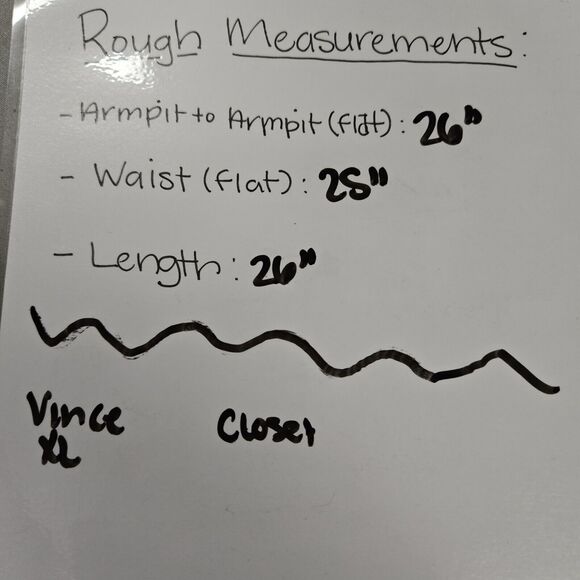 Rough Measurements:
- Armpit to Armpit (flat): 26"
- Waist (flat): 25"
- Length: 26"
Vince Closet
XL